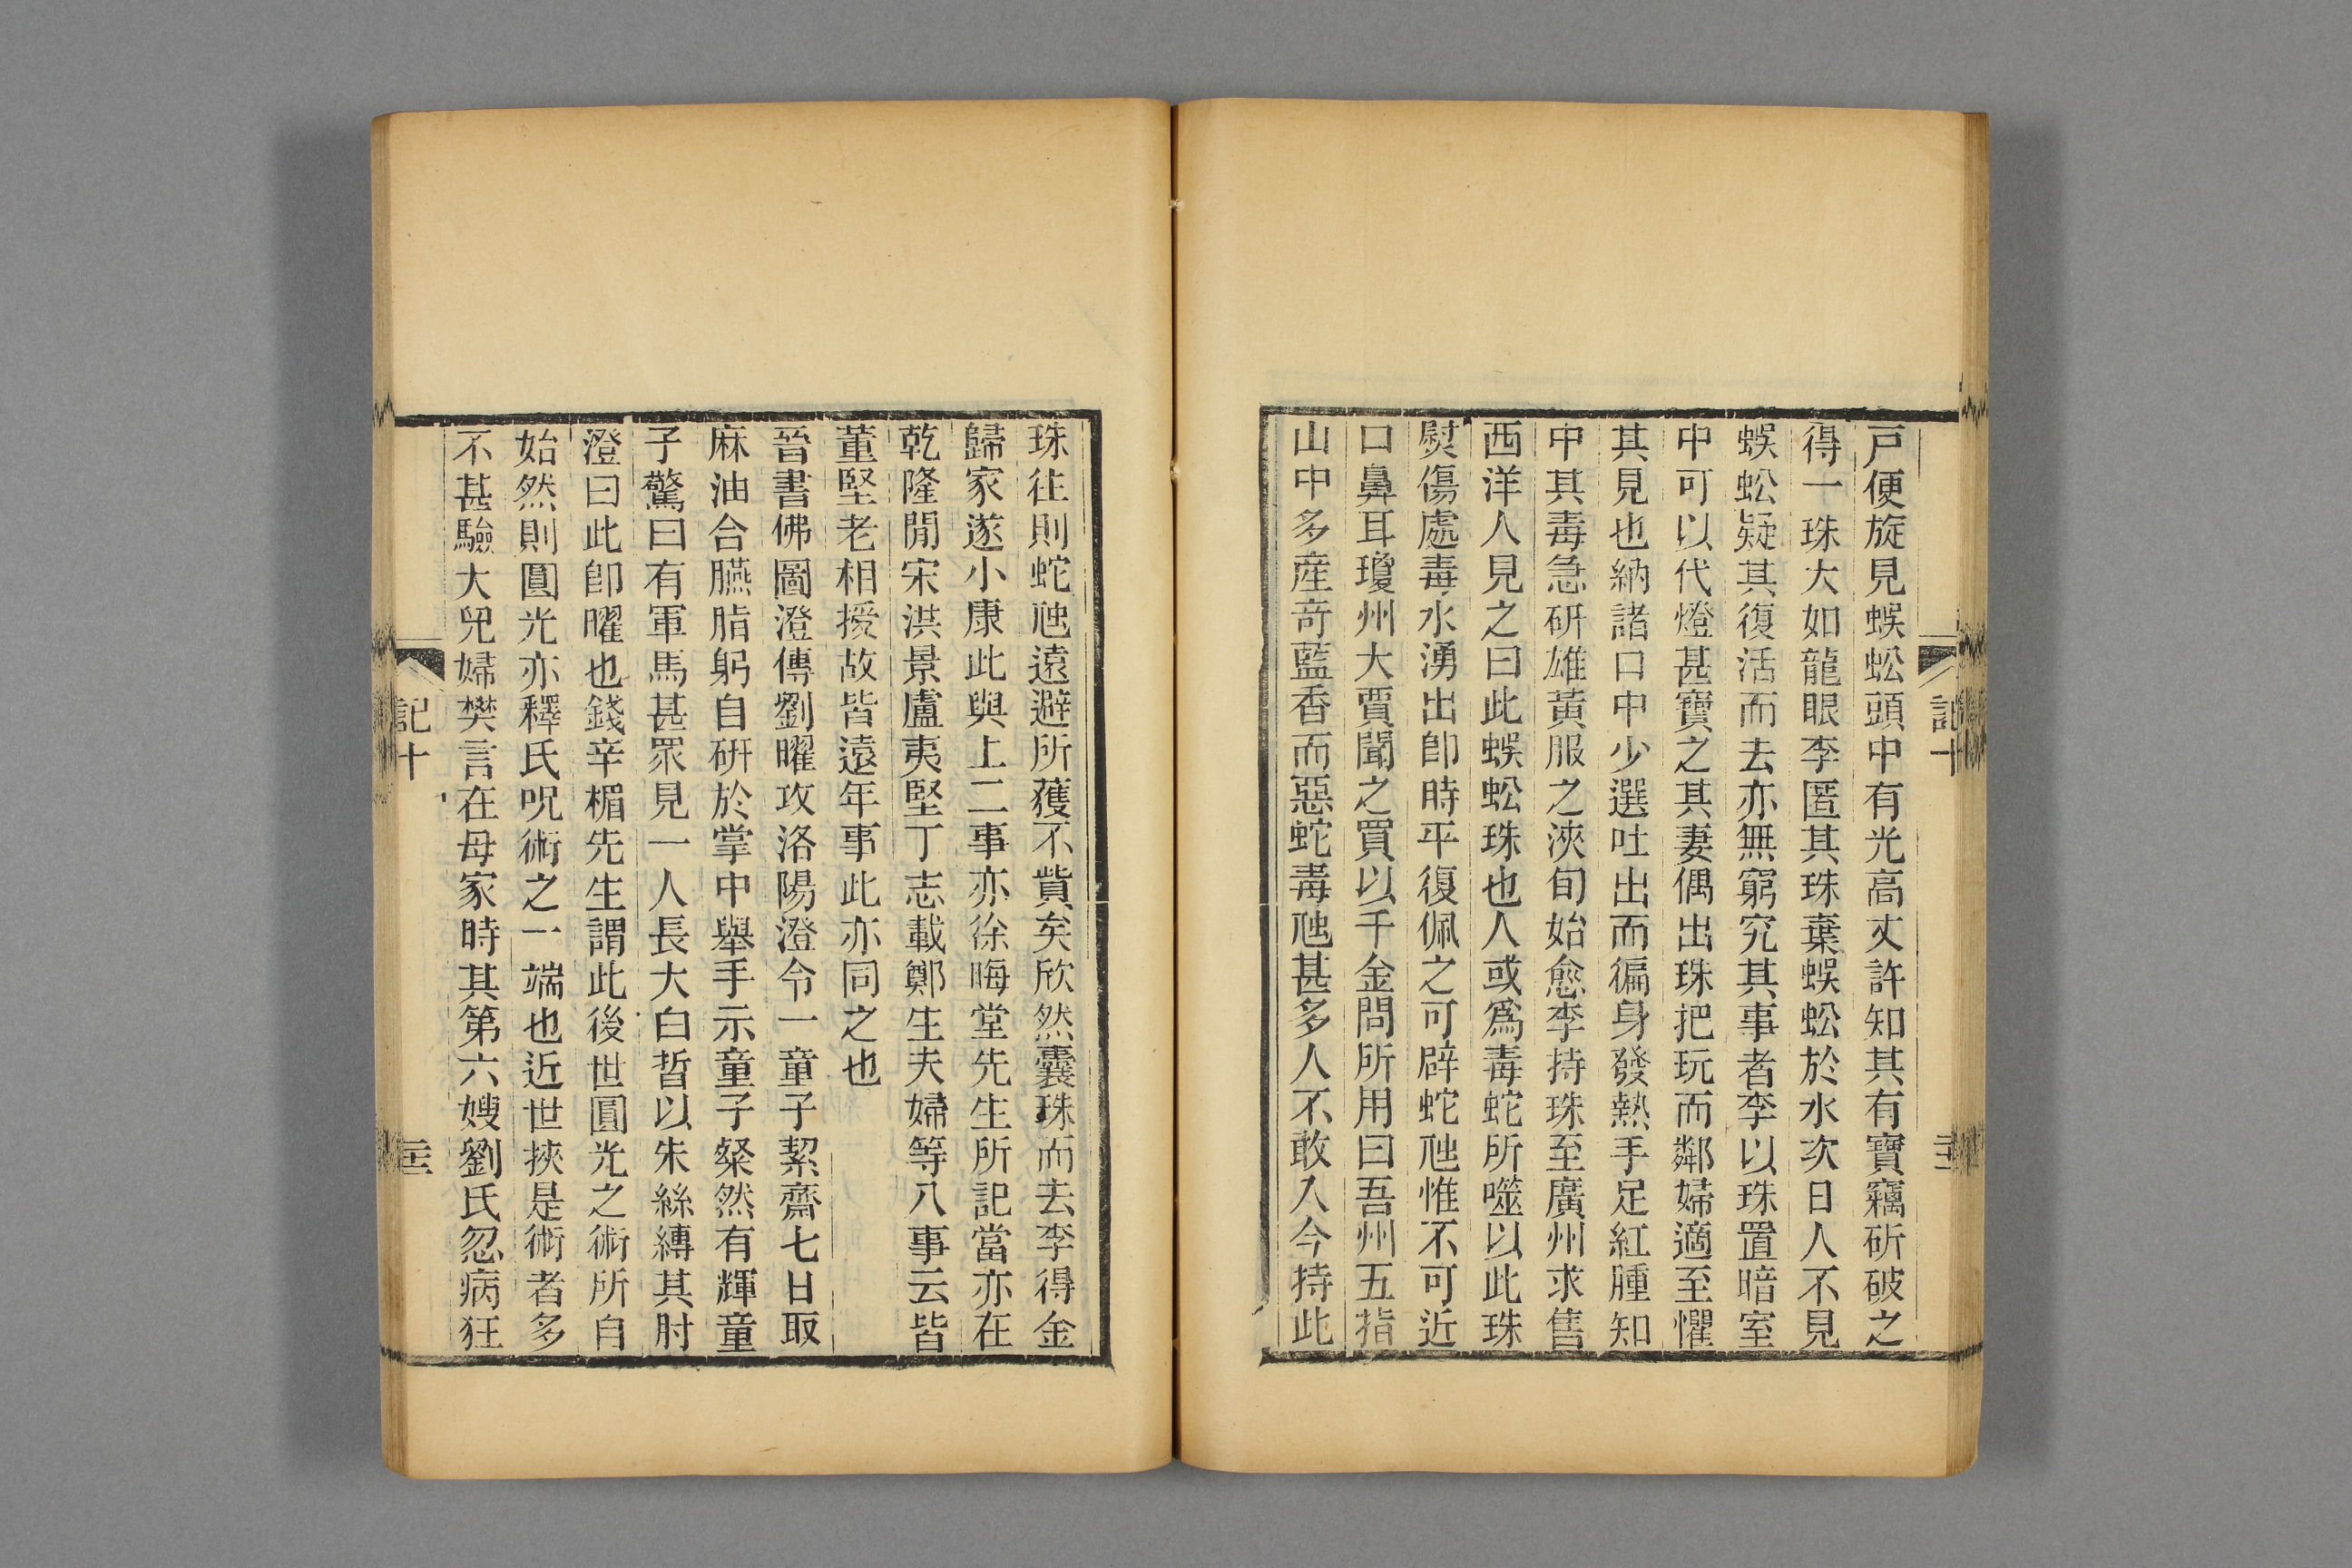 戸便旋見蜈蚣頭中有光高丈許知其有寶竊斫破之
得一珠大如龍眼李匿其珠棄蜈蚣於水次日人不見
蜈蚣疑其復活而去亦無窮究其事者李以珠置暗室
中可以代燈甚寶之其妻偶出珠把玩而鄰婦適至懼
其見也納諸口中少選吐出而徧身發熱手足紅腫知
中其毒急研雄黃服之浹旬始愈李持珠至廣州求售
西洋人見之曰此蜈蚣珠也人或爲毒蛇所噬以此珠
熨傷處毒水湧出卽時平復佩之可辟蛇虺惟不可近
口鼻耳瓊州大賈聞之買以千金問所用曰吾州五指
山中多産奇藍香而惡蛇毒虺甚多人不敢入今持此
珠往則蛇虺遠避所獲不貲矣欣然囊珠而去李得金
歸家遂小康此與上二事亦徐晦堂先生所記當亦在
乾隆閒宋洪景盧夷堅丁志載鄭生夫婦等八事云皆
董堅老相授故皆遠年事此亦同之也
晉書佛圖澄傳劉曜攻洛陽澄令一童子絜齋七日取
麻油合臙脂躬自硏於掌中舉手示童子粲然有輝童
子驚曰有軍馬甚眾見一人長大白皙以朱絲縛其肘
澄曰此卽曜也錢辛楣先生謂此後世圓光之術所自
始然則圓光亦釋氏呪術之一端也近世挾是術者多
不甚驗大兒婦樊言在母家時其第六嫂劉氏忽病狂
記十